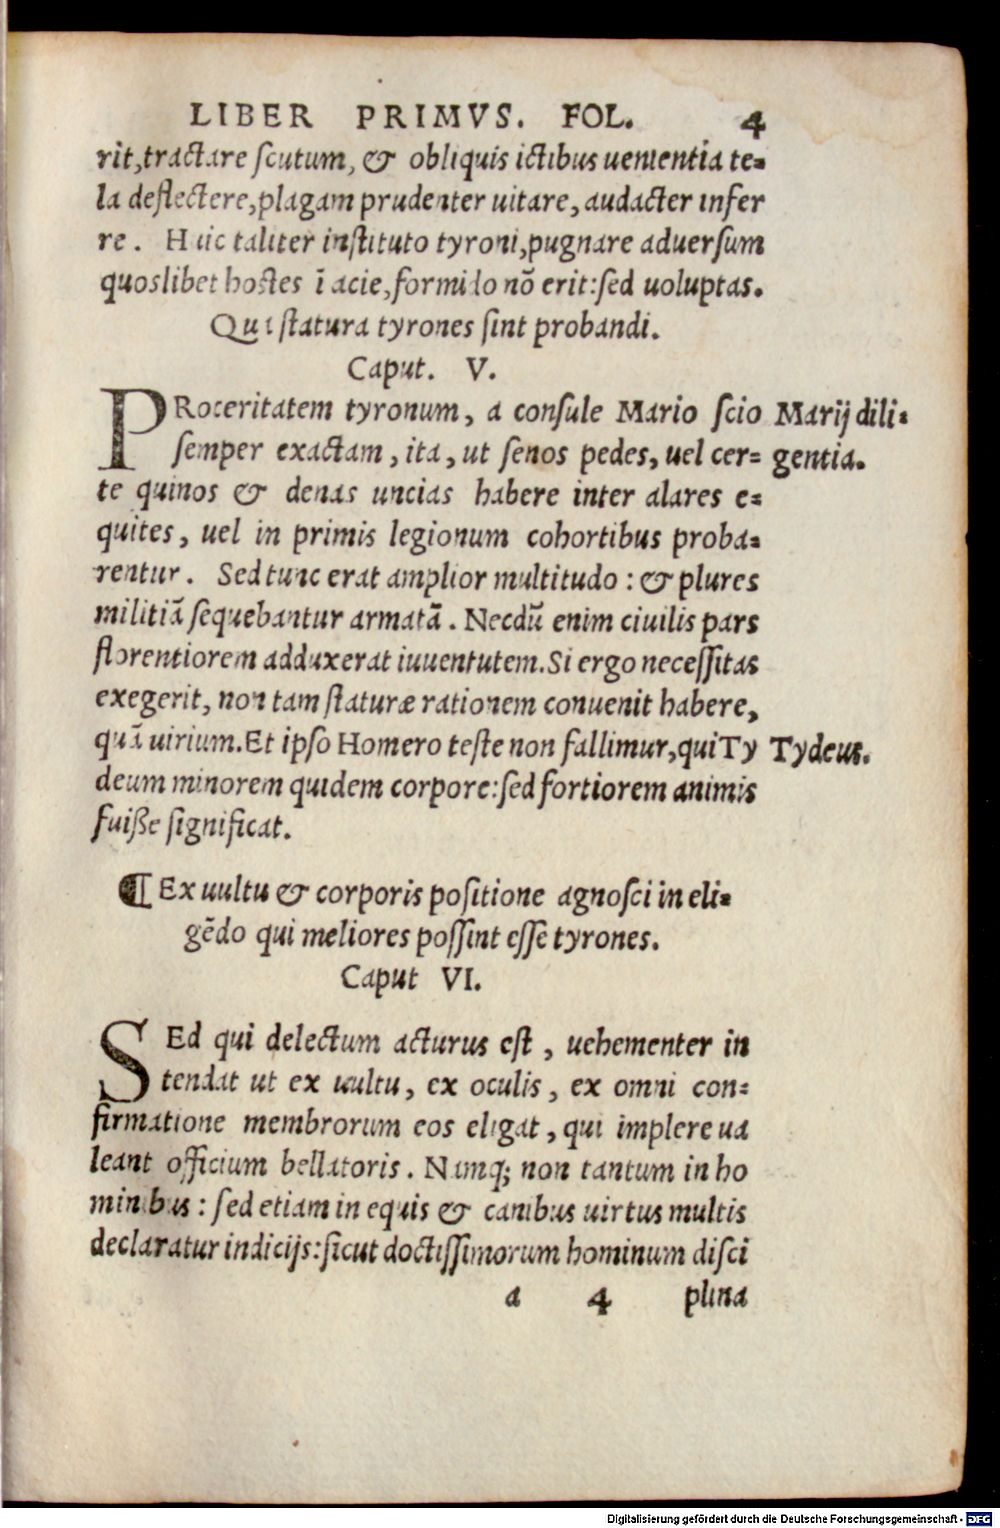 LIBER PRIMVS. FOL. 4
rit,tractare scutum, & obliquis ictibus uenientia te=
la deflectere,plagam prudenter uitare, audacter infer
re. Huic taliter instituto tyroni,pugnare aduersum
quoslibet hostes ī acie,formido nō erit:sed uoluptas.
Qui statura tyrones sint probandi.
Caput. V.
PRoceritatem tyronum, a consule Mario scio Marij dili=
semper exactam, ita, ut senos pedes, uel cer= gentia.
te quinos & denas uncias habere inter alares e=
quites, uel in primis legionum cohortibus proba=
rentur. Sed tunc erat amplior multitudo : & plures
militiā sequebantur armatā. Necdū enim ciuilis pars
florentiorem adduxerat iuuentutem.Si ergo necessitas
exegerit, non tam staturæ rationem conuenit habere,
quā uirium.Et ipso Homero teste non fallimur,qui Ty Tydeus.
deum minorem quidem corpore:sed fortiorem animis
fuiße significat.
¶ Ex uultu & corporis positione agnosci in eli=
gēdo qui meliores possint esse tyrones.
Caput VI.
SEd qui delectum acturus est , uehementer in
tendat ut ex uultu, ex oculis, ex omni con=
firmatione membrorum eos eligat, qui implere ua
leant officium bellatoris. Namq; non tantum in ho
minibus : sed etiam in equis & canibus uirtus multis
declaratur indicijs:sicut doctissimorum hominum disci
a 4 plina
Digitalisierung gefördert durch die Deutsche Forschungsgemeinschaft - DFG